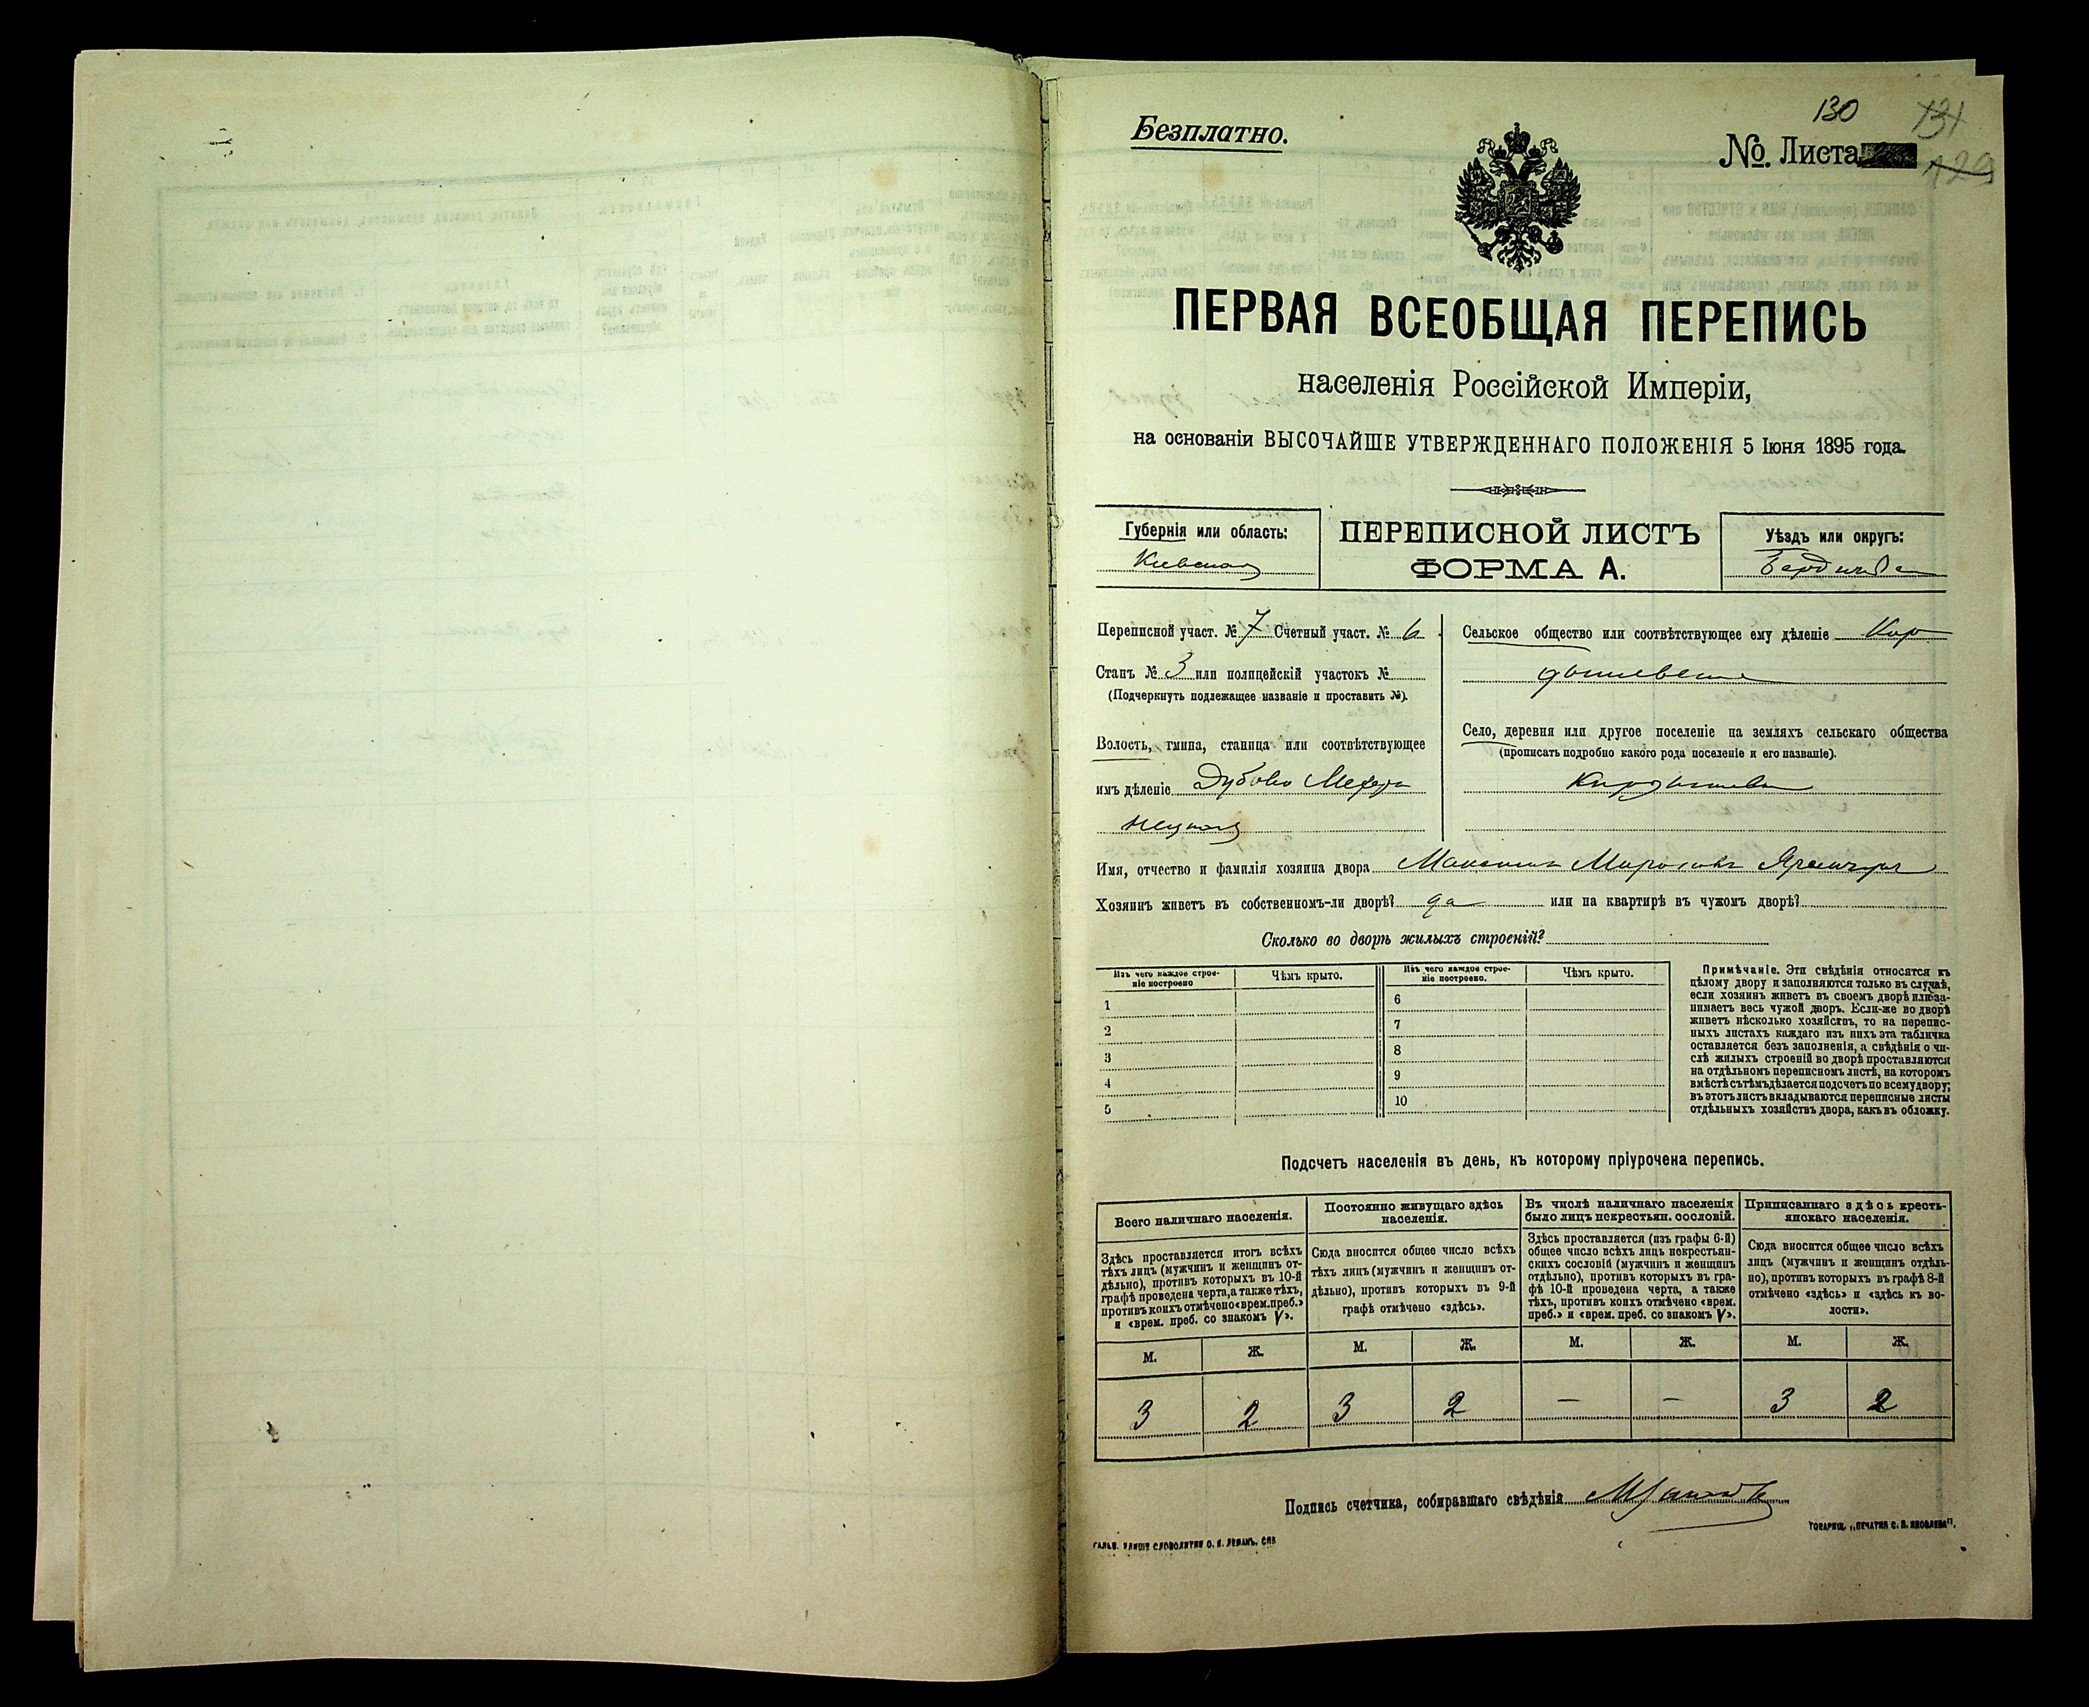 130
131
129
Безплатно.
№. Листа
ПЕРВАЯ ВСЕОБЩАЯ ПЕРЕПИСЬ
населенія Россійской Имперіи,
на основаніи ВЫСОЧАЙШЕ УТВЕРЖДЕННАГО ПОЛОЖЕНІЯ 5 Іюня 1895 года.
Губернія или область:
Кіевская
ПЕРЕПИСНОЙ ЛИСТЪ
ФОРМА А.
Уѣздъ или округъ:
Переписной участ. № 7 Счетный участ. № 6
Станъ № 3 или полицейскій участокъ №
(Подчеркнуть подлежащее названіе и проставить №).
Волость, гмина, станица или соотвѣтствующее
имъ дѣленіе Дубово
Сельское общество или соотвѣтствующее ему дѣленіе
Село, деревня или другое поселеніе на земляхъ сельскаго общества
(прописать подробно какого рода поселеніе и его названіе).
Имя, отчество и фамилія хозяина двора Максимъ
Хозяинъ живетъ въ собственномъ-ли дворѣ? да или на квартирѣ въ чужомъ дворѣ?
Сколько во дворѣ жилыхъ строеній?
Изъ чего каждое строе-
ніе построено
Чѣмъ крыто.
Изъ чего каждое строе-
ніе построено.
Чѣмъ крыто.
1
2
3
4
5
6
7
8
9
10
Примѣчаніе. Эти свѣдѣнія относятся къ
цѣлому двору и заполняются только въ случаѣ,
если хозяинъ живетъ въ своемъ дворѣ или за-
нимаетъ весь чужой дворъ. Если-же во дворѣ
живетъ нѣсколько хозяйствъ, то на перепис-
ныхъ листахъ каждаго изъ нихъ эта табличка
оставляется безъ заполненія, а свѣдѣнія о чи-
слѣ жилыхъ строеній во дворѣ проставляются
на отдѣльномъ переписномъ листѣ, на которомъ
вмѣстѣ съ тѣмъ дѣлается подсчетъ по всему двору;
въ этотъ листъ вкладываются переписные листы
отдѣльныхъ хозяйствъ двора, какъ въ обложку.
Подсчетъ населенія въ день, къ которому пріурочена перепись.
Всего наличнаго населенія.
Здѣсь проставляется итогъ всѣхъ
тѣхъ лицъ (мужчинъ и женщинъ от-
дѣльно), противъ которыхъ въ 10-й
графѣ проведена черта, а также тѣхъ,
противъ коихъ отмѣчено «врем. преб.»
и «врем. преб. со знакомъ V».
Постоянно живущаго здѣсь
населенія.
Сюда вносится общее число всѣхъ
тѣхъ лицъ (мужчинъ и женщинъ от-
дѣльно), противъ которыхъ въ 9-й
графѣ отмѣчено «здѣсь».
Въ числѣ наличнаго населенія
было лицъ некрестьян. сословій.
Здѣсь проставляется (изъ графы 6-й)
общее число всѣхъ лицъ некрестьян-
скихъ сословій (мужчинъ и женщинъ
отдѣльно), противъ которыхъ въ гра-
фѣ 10-й проведена черта, а также
тѣхъ, противъ коихъ отмѣчено «врем.
преб.» и «врем. преб. со знакомъ V».
Приписаннаго здѣсь кресть-
янскаго населенія.
Сюда вносится общее число всѣхъ
лицъ (мужчинъ и женщинъ отдѣль-
но), противъ которыхъ въ графѣ 8-й
отмѣчено «здѣсь» и «здѣсь къ во-
лости».
М. Ж. М. Ж. М. Ж. М. Ж.
3 2 3 2 — — 3 2
Подпись счетчика, собиравшаго свѣдѣнія
ГАЛЬВ. КЛИШЕ СЛОВОЛИТНИ О. И. ЛЕМАНЪ, СПБ
ТОВАРИЩ. „ПЕЧАТНЯ С. П. ЯКОВЛЕВА".